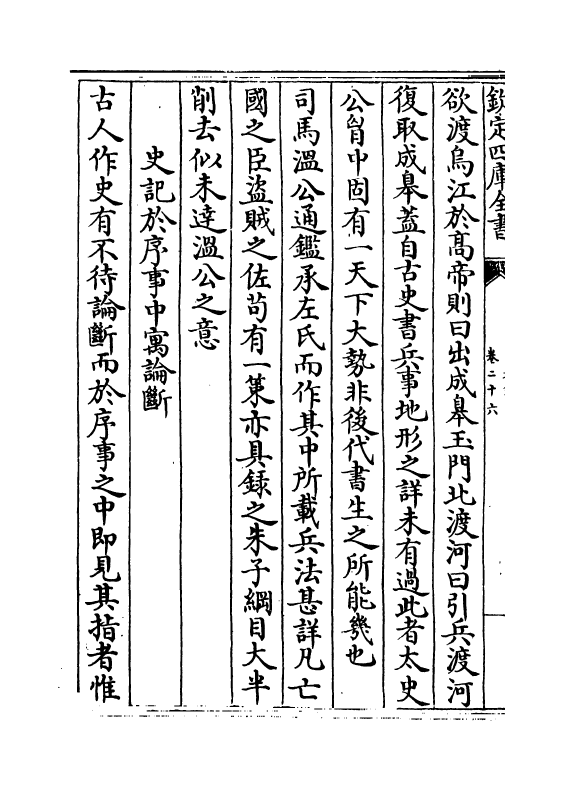 欽定四庫全書
卷二十六
欲渡烏江於髙帝則曰出成皋玉門北渡河曰引兵渡河
復取成皋葢自古史書兵事地形之詳未有過此者太史
公胷中固有一天下大勢非後代書生之所能幾也
司馬溫公通鑑承左氏而作其中所載兵法甚詳凡亡
國之臣盜賊之佐苟有一策亦具録之朱子綱目大半
削去似未達溫公之意
史記於序事中寓論斷
古人作史有不待論斷而於序事之中即見其指者惟